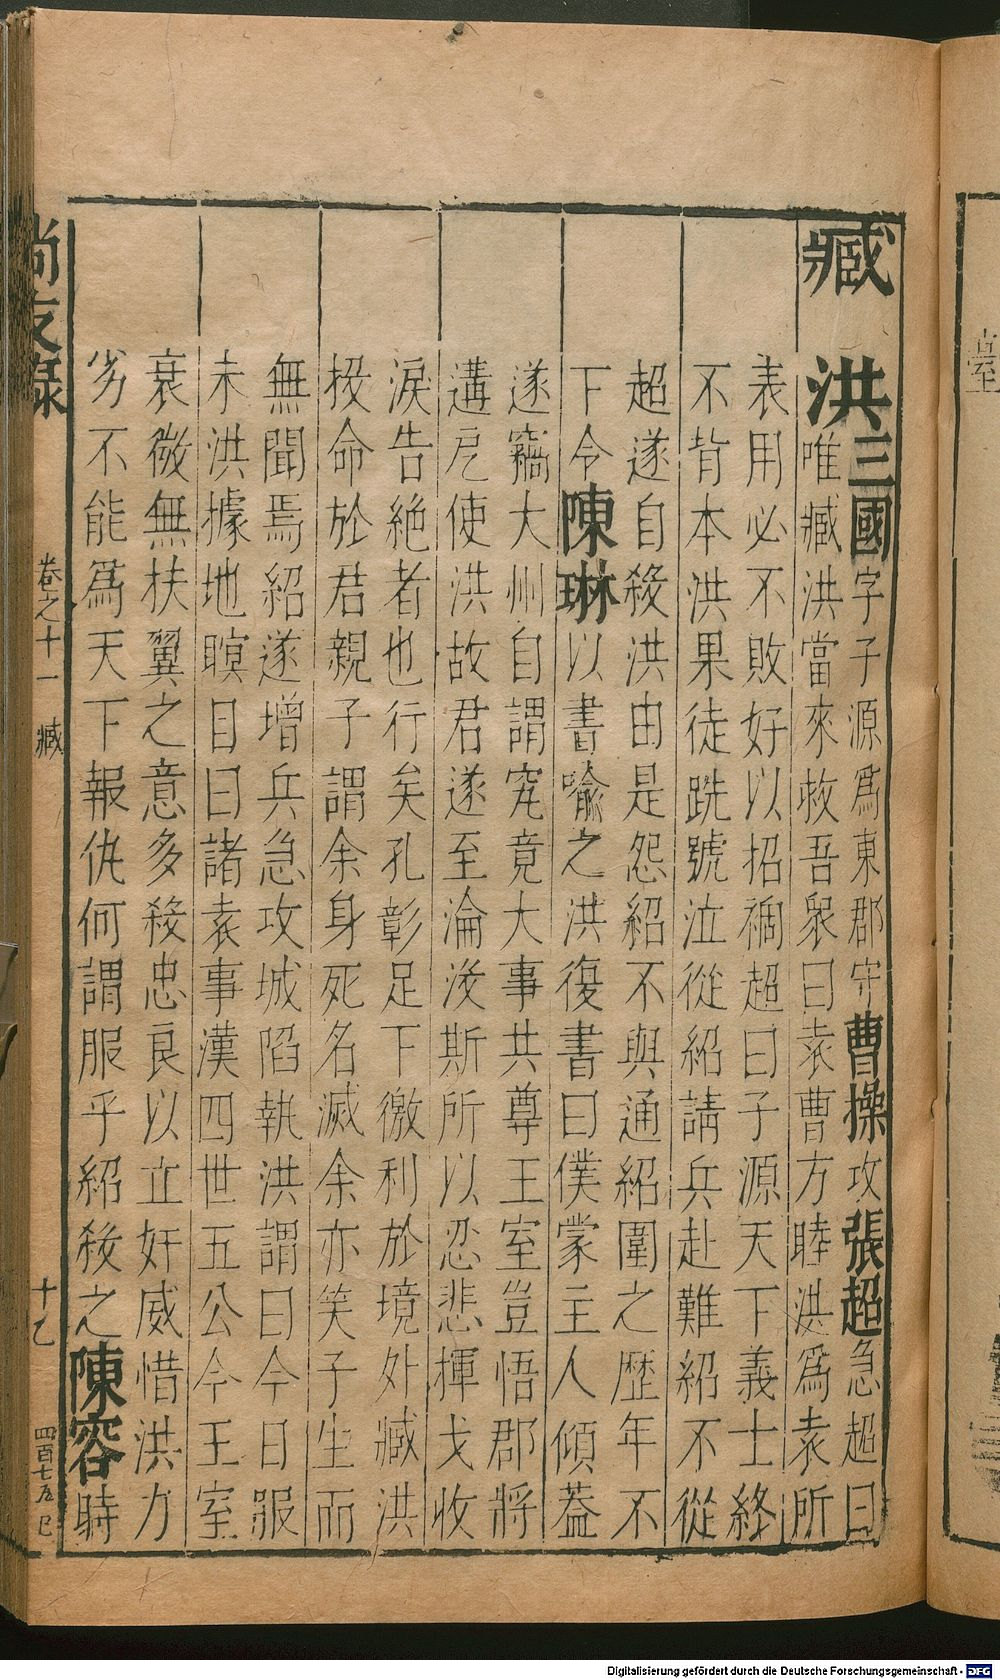 臧
洪三國字子源爲東郡守曹操攻張超急超曰
唯臧洪當來救吾衆曰袁曹方睦洪爲袁所
表用必不敗好以招禍超曰子源天下義士終
不背本洪果徒跣號泣從紹請兵赴難紹不從
超遂自殺洪由是怨紹不與通紹圍之歷年不
下令陳琳以書喻之洪復書曰僕蒙主人傾葢
遂竊大州自謂究竟大事共尊王室豈悟郡將
遘戹使洪故君遂至淪沒斯所以忍悲揮戈收
淚告絶者也行矣孔彰足下徼利於境外臧洪
投命於君親子謂余身死名滅余亦笑子生而
無聞焉紹遂增兵急攻城陷執洪謂曰今日服
未洪據地瞑目曰諸袁事漢四世五公今王室
衰微無扶翼之意多殺忠良以立奸威惜洪力
劣不能爲天下報仇何謂服乎紹殺之陳容時
尚友録
卷之十一 臧
十乙
四百七五
Digitalisierung gefördert durch die Deutsche Forschungsgemeinschaft - DFG